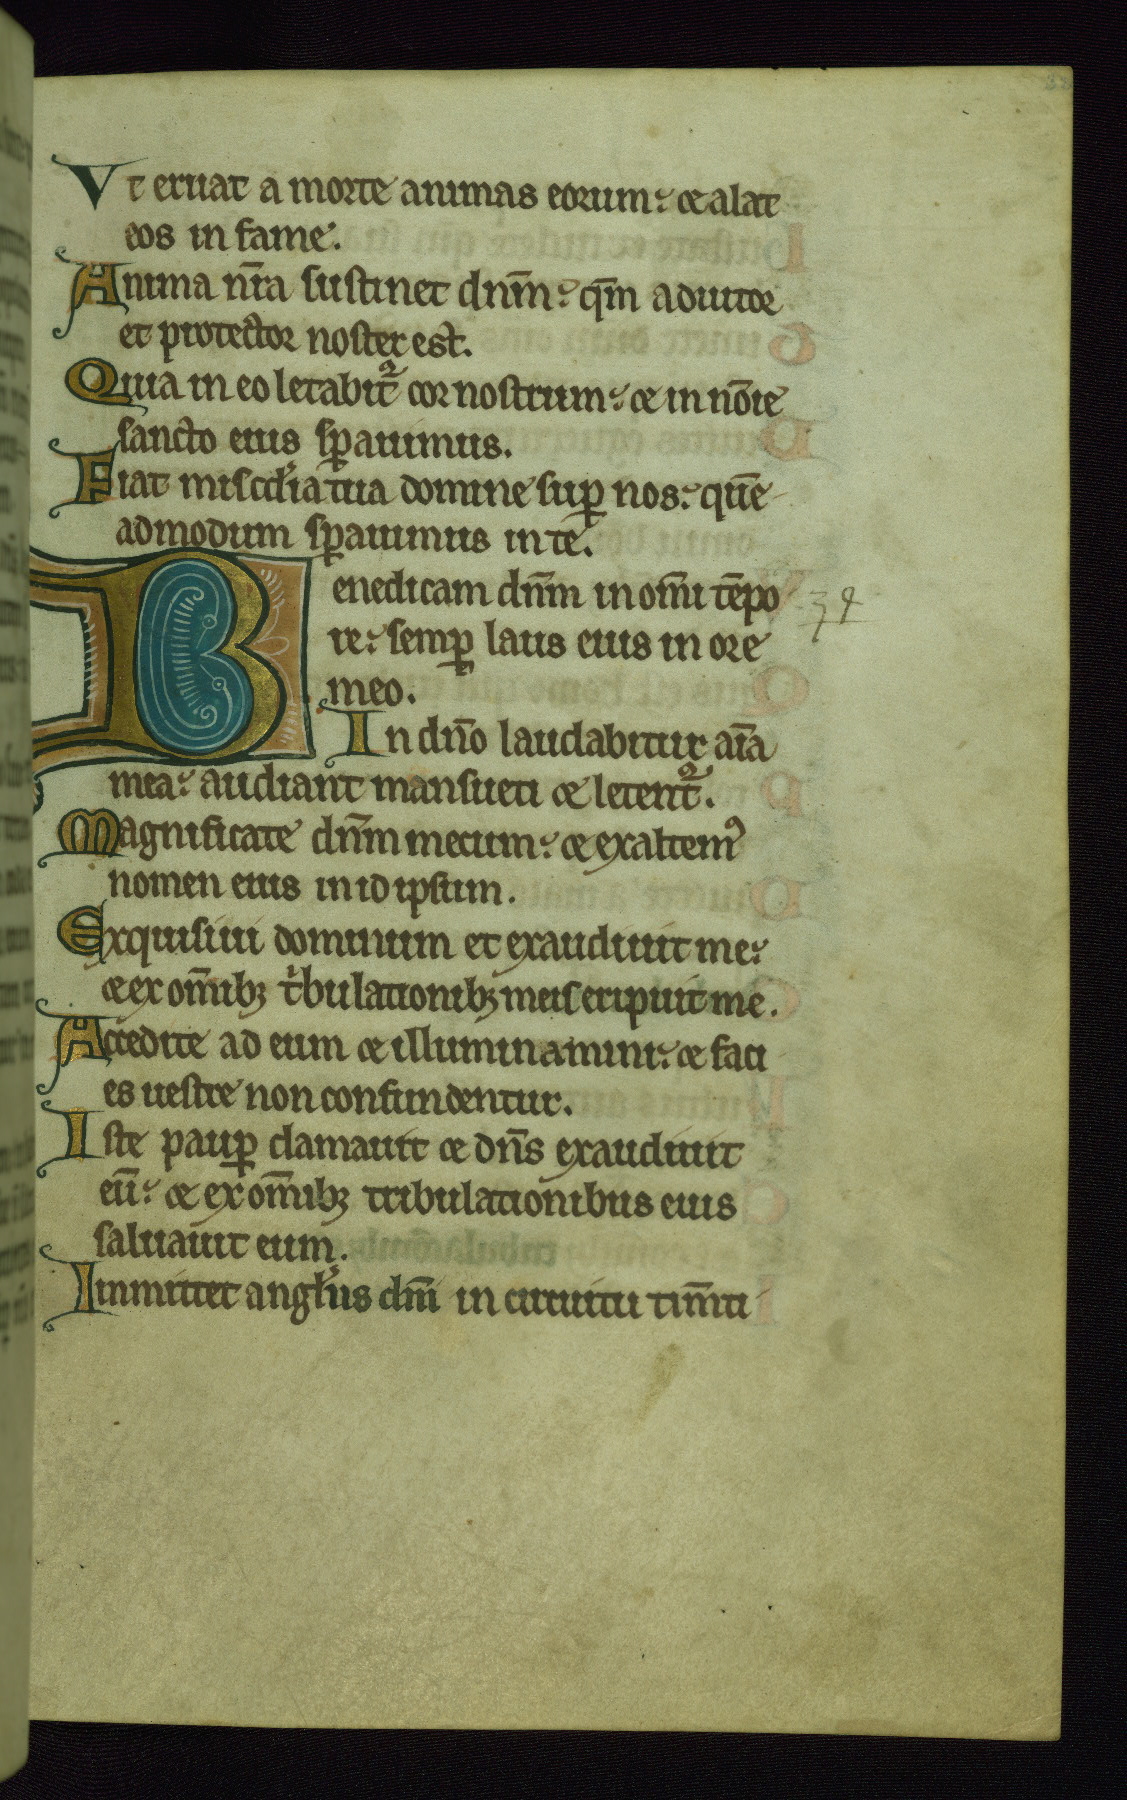 Vt eruat a morte animas eorum: et alat
eos in fame.
Anima nr̄a sustinet dn̄m: qm̄ adiutor
et protector noster est.
Quia in eo letabit᷑ cor nostrum: et in nōie
sancto eius sꝑauimus.
Fiat misc̄dia tua domine suꝑ nos: quē
admodum sꝑauimus in te.
Benedicam dn̄m in om̄i tēpo
re: semꝑ laus eius in ore
meo.
In dn̄o laudabitur aīa
mea: audiant mansueti et letent᷑.
Magnificate dn̄m mecum: et exaltemꝰ
nomen eius in id ipsum.
Exquisiui dominum et exaudiuit me:
et ex om̄ibꝫ tⁱbulationibꝫ meis eripuit me.
Accedite ad eum et illuminamini: et faci
es uestre non confundentur.
Iste pauꝑ clamauit et dn̄s exaudiuit
eū: et ex om̄ibꝫ tribulationibus eius
saluauit eum.
Inmittet angelus dn̄i in circuitu tim̄ti